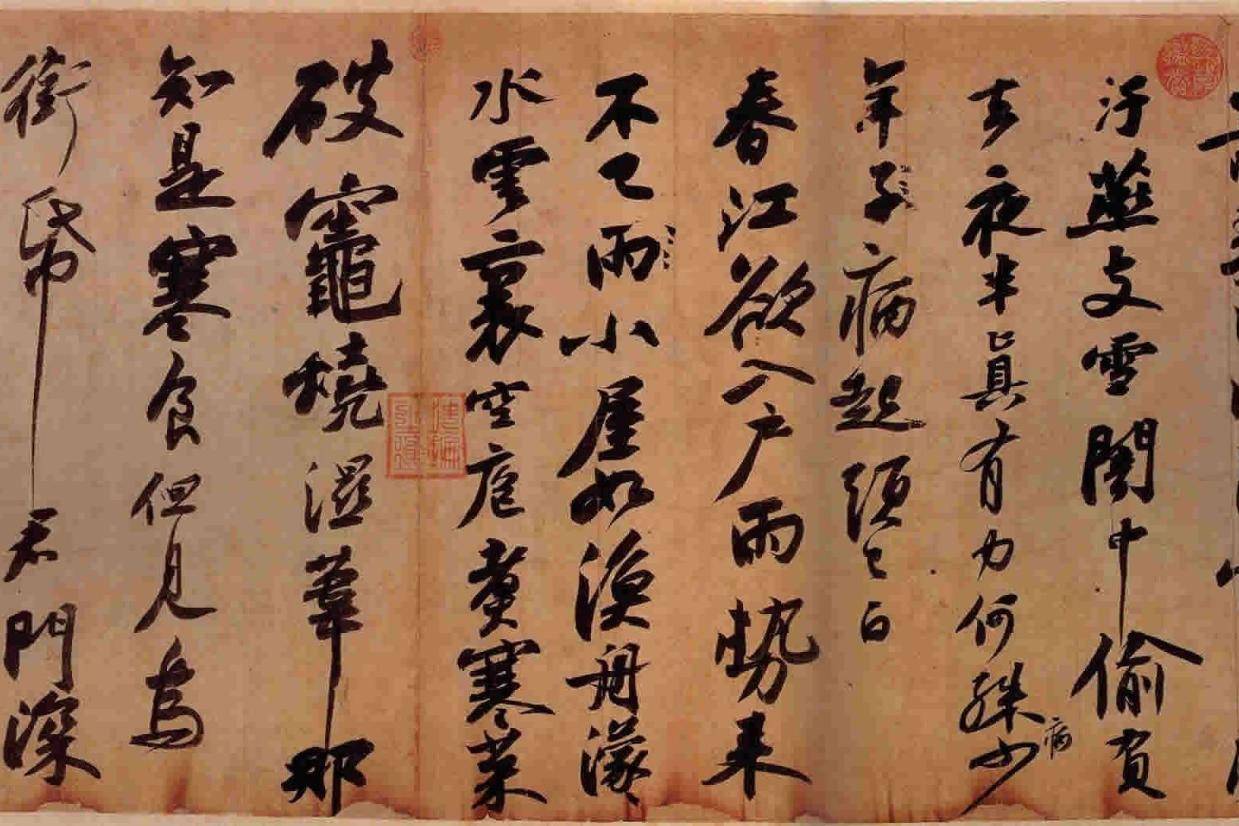 汙燕支雪闇中偷負
去夜半真有力何殊少
病
年子病起須已白
春江欲入戶雨勢來
不已雨小屋如漁舟濛々
水雲裏空庖煮寒菜
破竈燒濕葦那
知是寒食但見烏
銜帋君門深